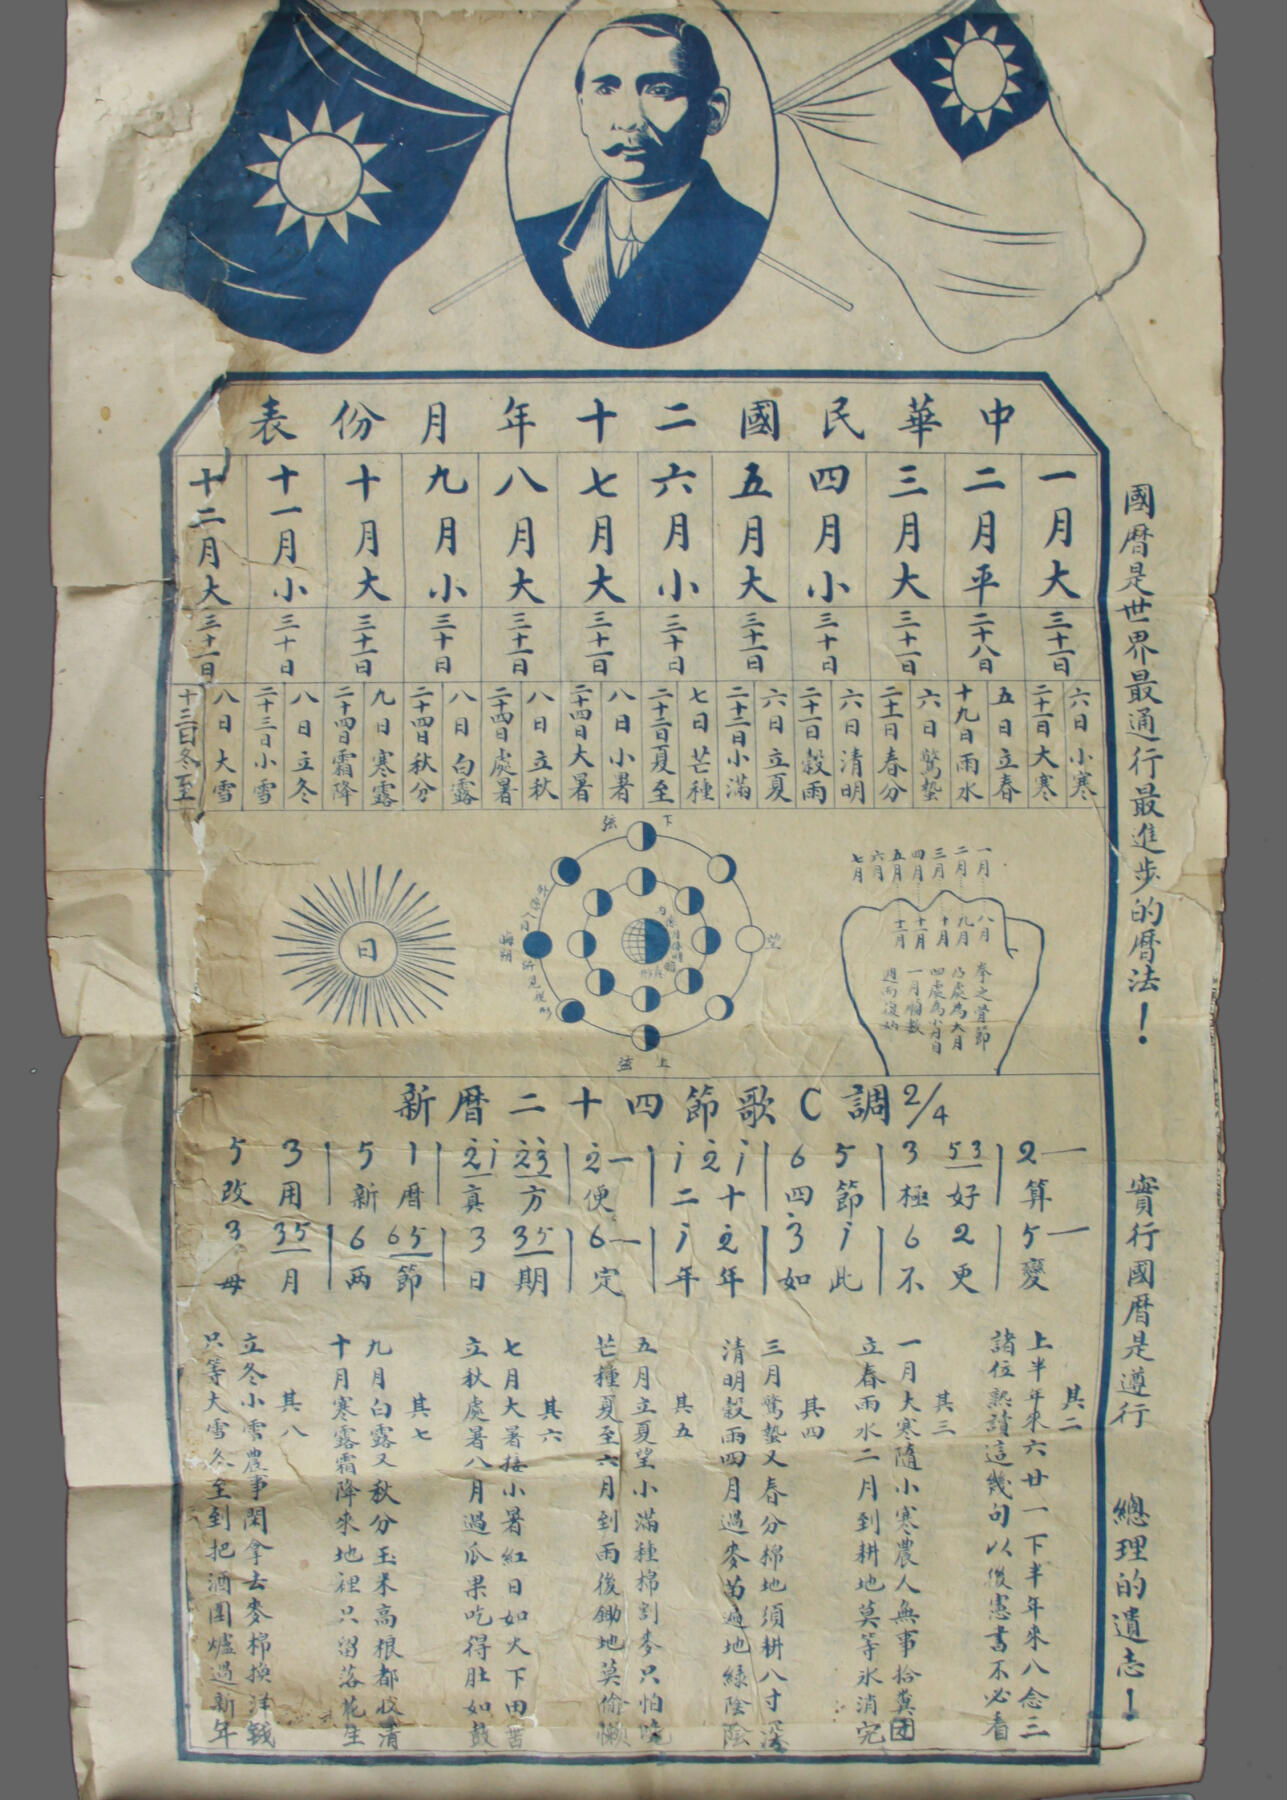 中華民國二十年月份表
一月大
三十一日
六日小寒
二十一日大寒
二月平
二十八日
五日立春
十九日雨水
三月大
三十一日
六日驚蟄
二十一日春分
四月小
三十日
六日清明
二十一日穀雨
五月大
三十一日
六日立夏
二十二日小滿
六月小
三十日
七日芒種
二十二日夏至
七月大
三十一日
八日小暑
二十四日大暑
八月大
三十一日
八日立秋
二十四日處暑
九月小
三十日
八日白露
二十四日秋分
十月大
三十一日
九日寒露
二十四日霜降
十一月小
三十日
八日立冬
二十三日小雪
十二月大
三十一日
八日大雪
十三日冬至
一月
二月
三月
四月
五月
六月
七月
八月
九月
十月
十一月
十二月
拳之骨節
凸處為大月
凹處為小月自
一月順數
週而復始
下弦
望
上弦
晦朔
日
新曆二十四節歌 C調 2/4
2— | 53 3 | 5 6 | i 2 i | 2— | 23 2i | 1 5 | 3 5
算 好極 節四 十二 便 方真 曆新 用改
5— | 2 6 | i 3 | 2 i | 6— | 35 3 | 65 6 | 35 3
變 更不 此如 年年 定 期日 節兩 月毋
其二
上半年來六廿一下半年來八念三
諸位熟讀這幾句以後憲書不必看
其三
一月大寒隨小寒農人無事拾糞团
立春雨水二月到耕地莫等氷消完
其四
三月驚蟄又春分棉地須耕八寸深
清明穀雨四月過麥苗遍地綠陰陰
其五
五月立夏望小滿種棉割麥只怕晚
芒種夏至六月到雨後鋤地莫偷懶
其六
七月大暑接小暑紅日如火下田苦
立秋處暑八月過瓜果吃得肚如鼓
其七
九月白露又秋分玉米高根都收清
十月寒露霜降來地裡只留落花生
其八
立冬小雪農事閑拿去麥棉換洋錢
只等大雪冬至到把酒圍爐過新年
國曆是世界最通行最進步的曆法！
實行國曆是遵行總理的遺志！